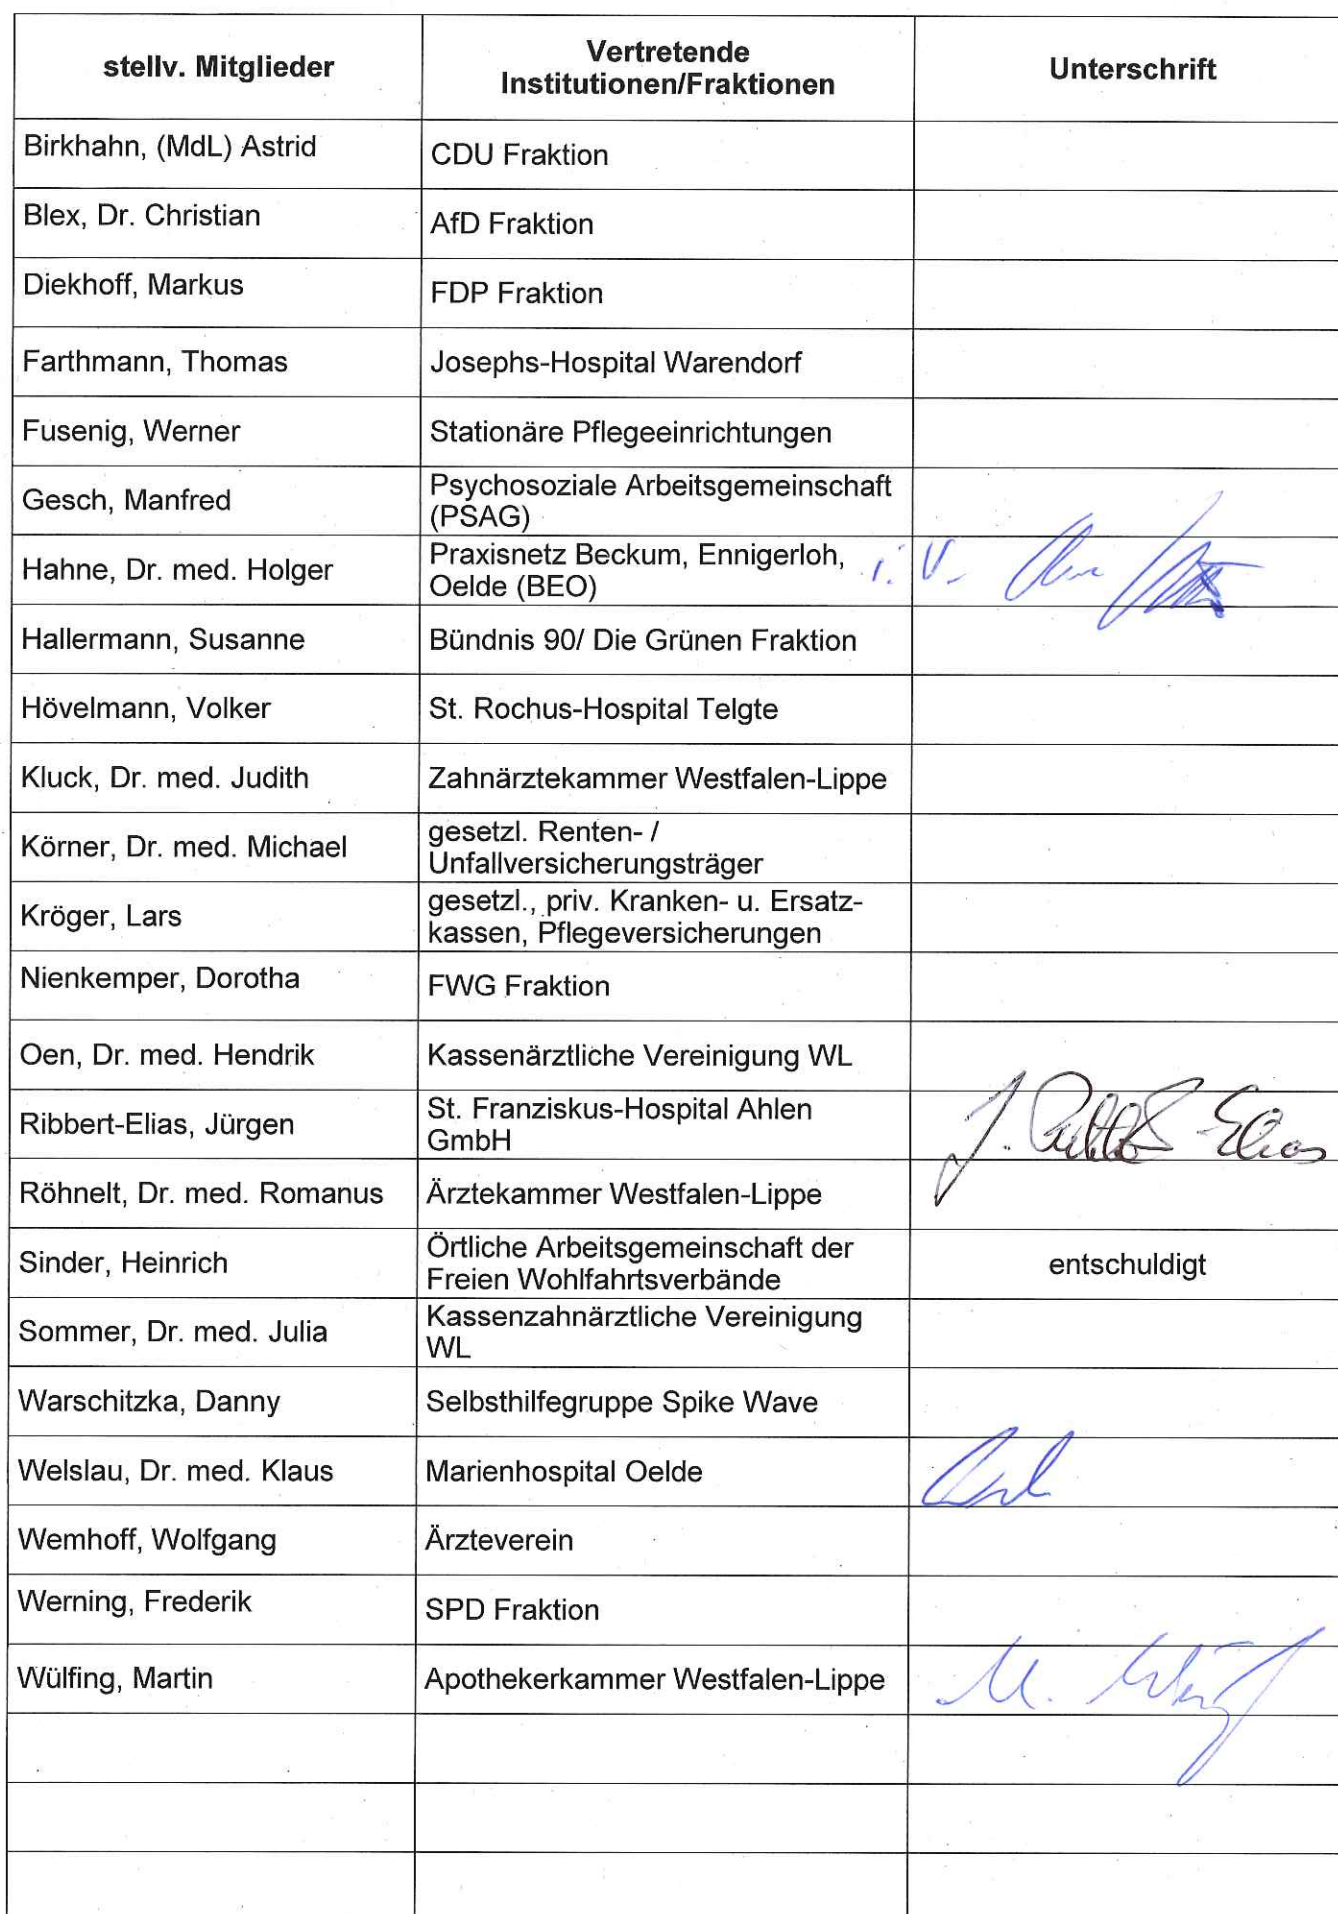 stellv. Mitglieder
Vertretende
Institutionen/Fraktionen
Unterschrift
Birkhahn, (MdL) Astrid
CDU Fraktion
Blex, Dr. Christian
AfD Fraktion
Diekhoff, Markus
FDP Fraktion
Farthmann, Thomas
Josephs-Hospital Warendorf
Fusenig, Werner
Stationäre Pflegeeinrichtungen
Gesch, Manfred
Psychosoziale Arbeitsgemeinschaft
(PSAG)
Hahne, Dr. med. Holger
Praxisnetz Beckum, Ennigerloh,
Oelde (BEO)
i. V.
Hallermann, Susanne
Bündnis 90/ Die Grünen Fraktion
Hövelmann, Volker
St. Rochus-Hospital Telgte
Kluck, Dr. med. Judith
Zahnärztekammer Westfalen-Lippe
Körner, Dr. med. Michael
gesetzl. Renten- /
Unfallversicherungsträger
Kröger, Lars
gesetzl., priv. Kranken- u. Ersatz-
kassen, Pflegeversicherungen
Nienkemper, Dorotha
FWG Fraktion
Oen, Dr. med. Hendrik
Kassenärztliche Vereinigung WL
Ribbert-Elias, Jürgen
St. Franziskus-Hospital Ahlen
GmbH
J. Elias
Röhnelt, Dr. med. Romanus
Ärztekammer Westfalen-Lippe
Sinder, Heinrich
Örtliche Arbeitsgemeinschaft der
Freien Wohlfahrtsverbände
entschuldigt
Sommer, Dr. med. Julia
Kassenzahnärztliche Vereinigung
WL
Warschitzka, Danny
Selbsthilfegruppe Spike Wave
Welslau, Dr. med. Klaus
Marienhospital Oelde
Wemhoff, Wolfgang
Ärzteverein
Werning, Frederik
SPD Fraktion
Wülfing, Martin
Apothekerkammer Westfalen-Lippe
M.